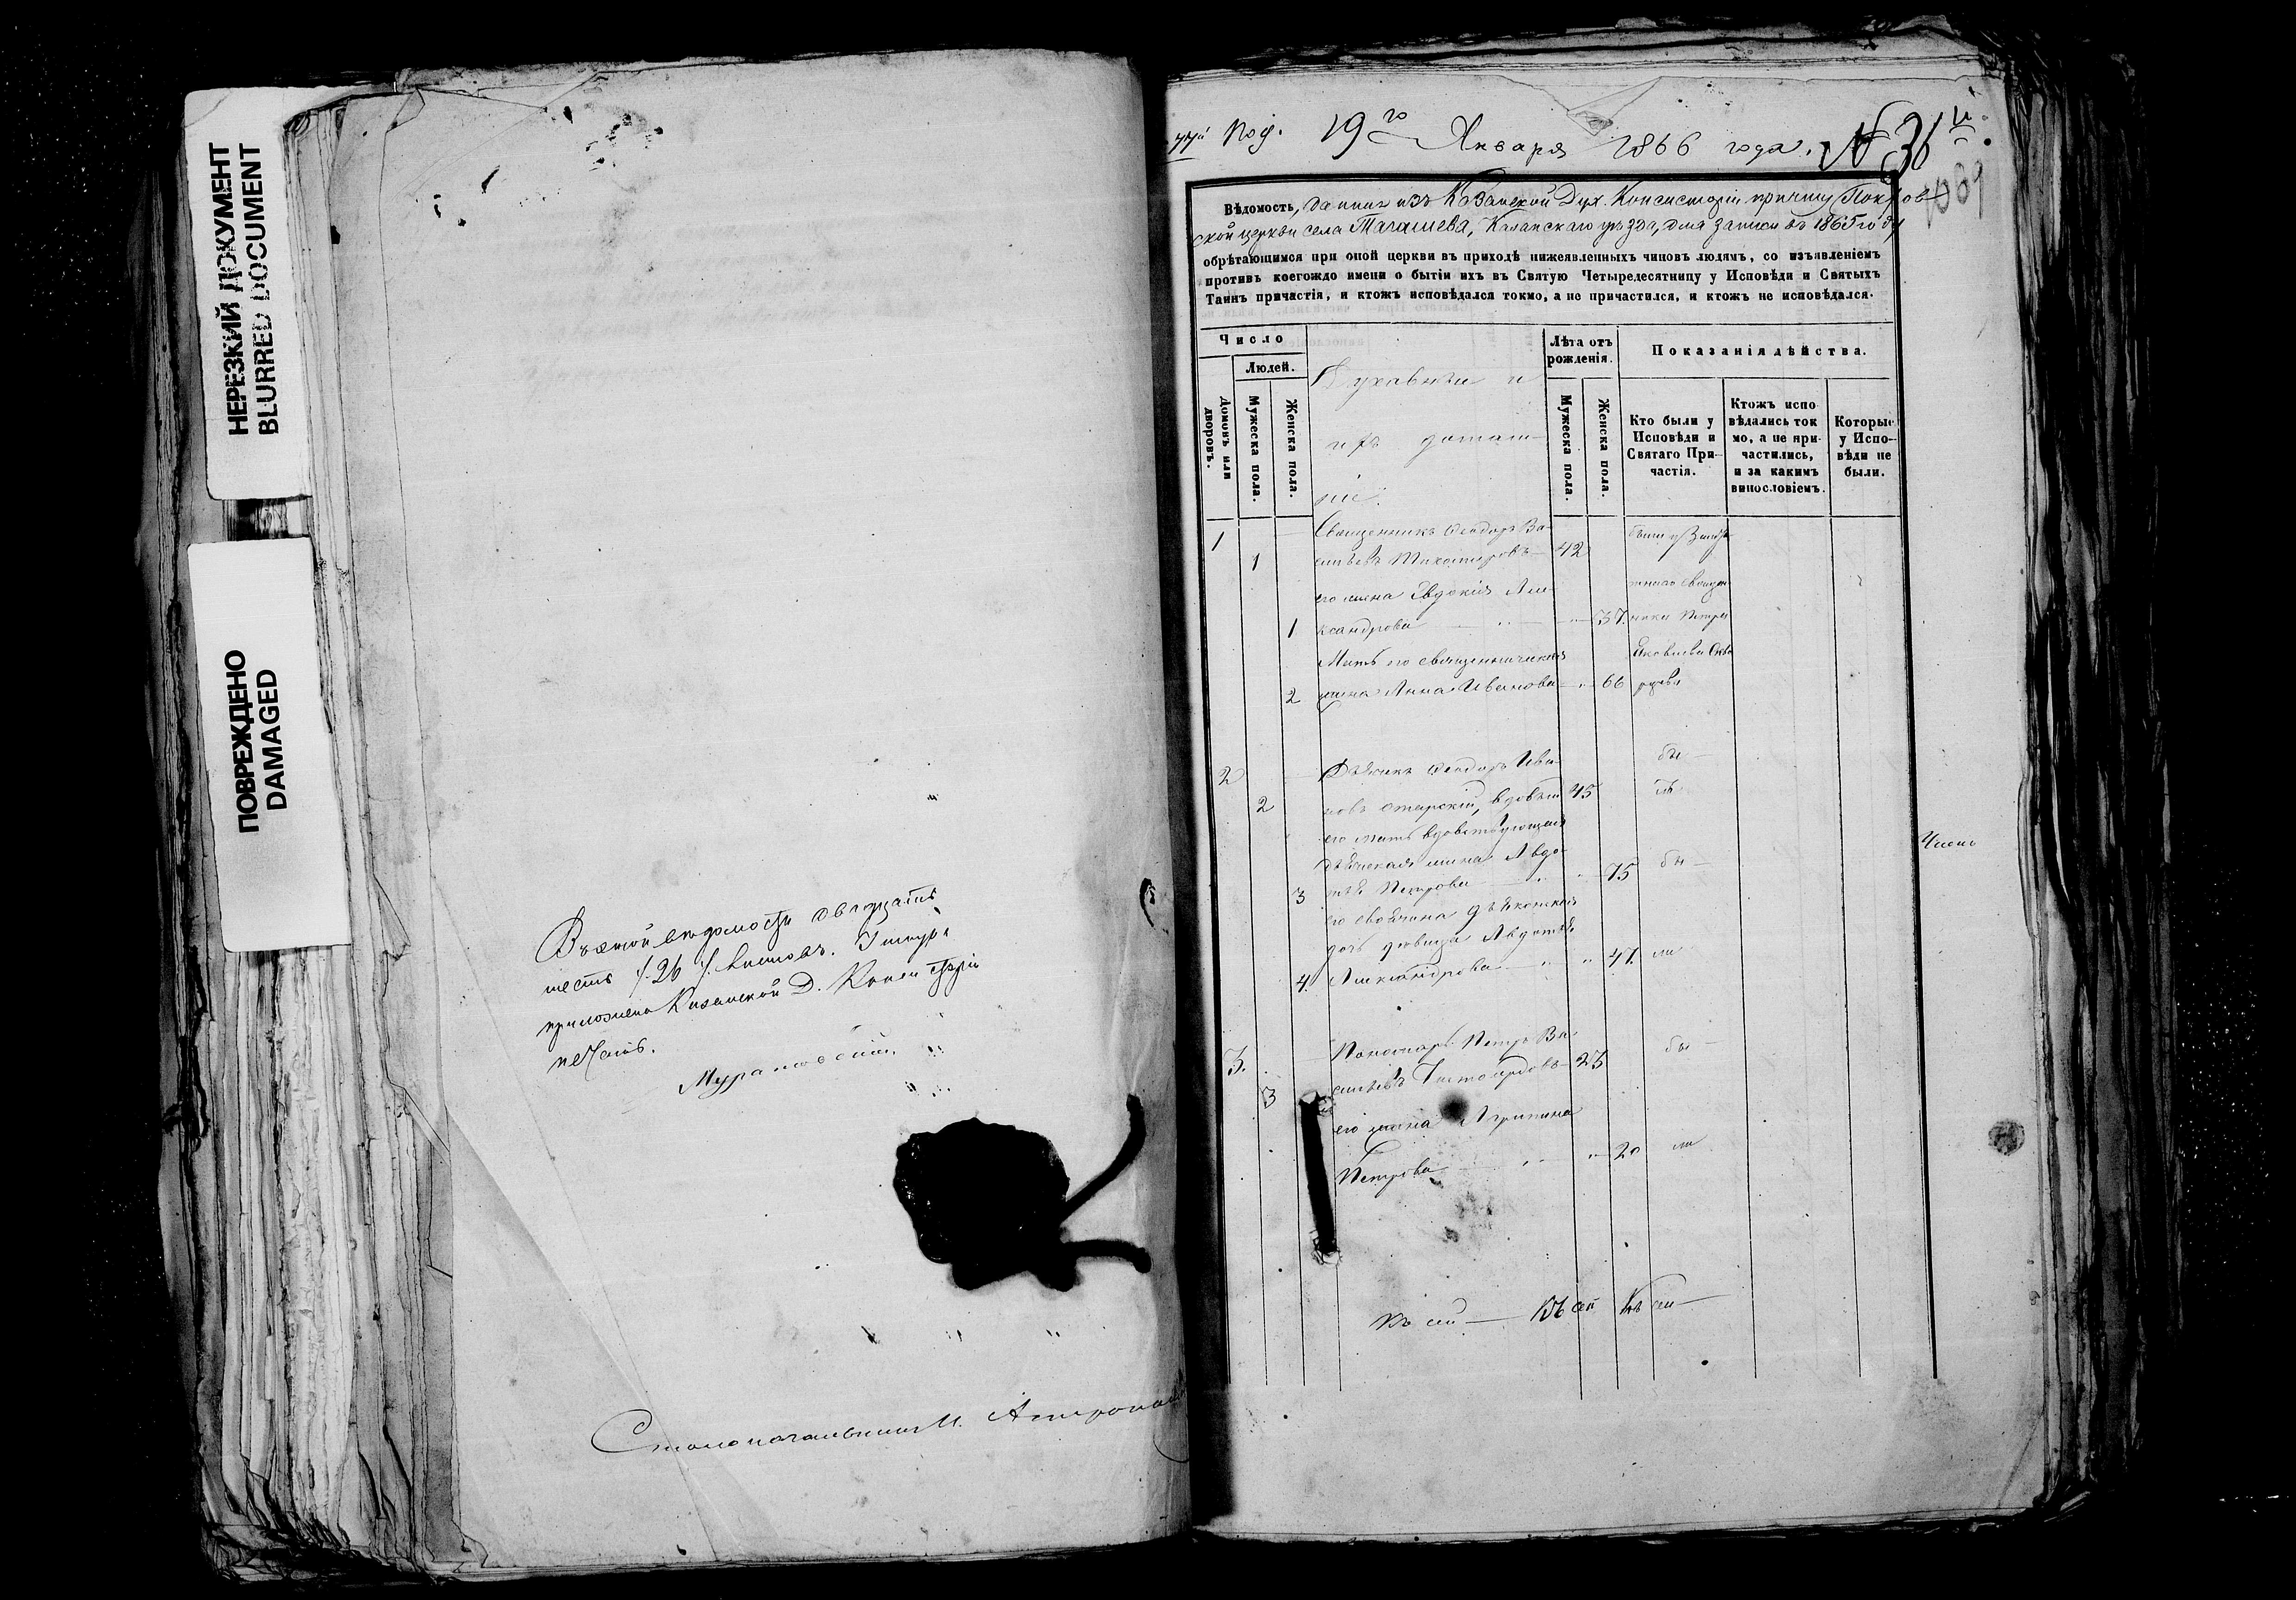 НЕРЕЗКИЙ ДОКУМЕНТ
BLURRED DOCUMENT
ПОВРЕЖДЕНО
DAMAGED
Въ этой ведомости двадцать
шесть /26/ листовъ. У шнура
приложена Казанской Д. Консисторіи
печать.
Столоначальникъ
19го Января 1866 года. № 36й
Вѣдомость, данная изъ Казанской Дух. Консисторіи причту Покров-
ской церкви села Тагашева, Казанскаго уѣзда, для записи въ 1865 году
обрѣтающимся при оной церкви въ приходѣ нижеявленныхъ чиновъ людямъ, со изъявленіемъ
противъ коегождо имени о бытіи ихъ въ Святую Четыредесятницу у Исповѣди и Святыхъ
Таинъ причастія, и ктожъ исповѣдался токмо, а не причастился, и ктожъ не исповѣдался.
Число
Людей.
Домовъ или дворовъ.
Мужеска пола.
Женска пола.
Духовные и
ихъ домаш-
ніе.
Лѣта отъ рожденія.
Мужеска пола.
Женска пола.
Показанія дѣйства.
Кто были у Исповѣди и Святаго При-частія.
Ктожъ испо вѣдались ток мо, а не при-частились, и за какимъ винословіемъ.
Которые у Испо-вѣди не были.
1 Священникъ Феодоръ Ва-
1 сильевъ Тихомировъ 42
его жена Евдокія Але-
1 ксандрова 37
Мать его священническая
2 жена Анна Иванова 66
2 Дьячекъ Феодоръ Ива-
2 новъ Старскій, вдовъ 45 бы
его мать вдовствующая
дьяческая жена Авдо-
3 тья Петрова 75 бы
его своячина дьяконская
дочь девица Авдотья
4. Александрова 47 ли
3. Пономарь Петръ Ва- бы
3 сильевъ 23
его жена Агрипина
Петрова 20 ли
Число